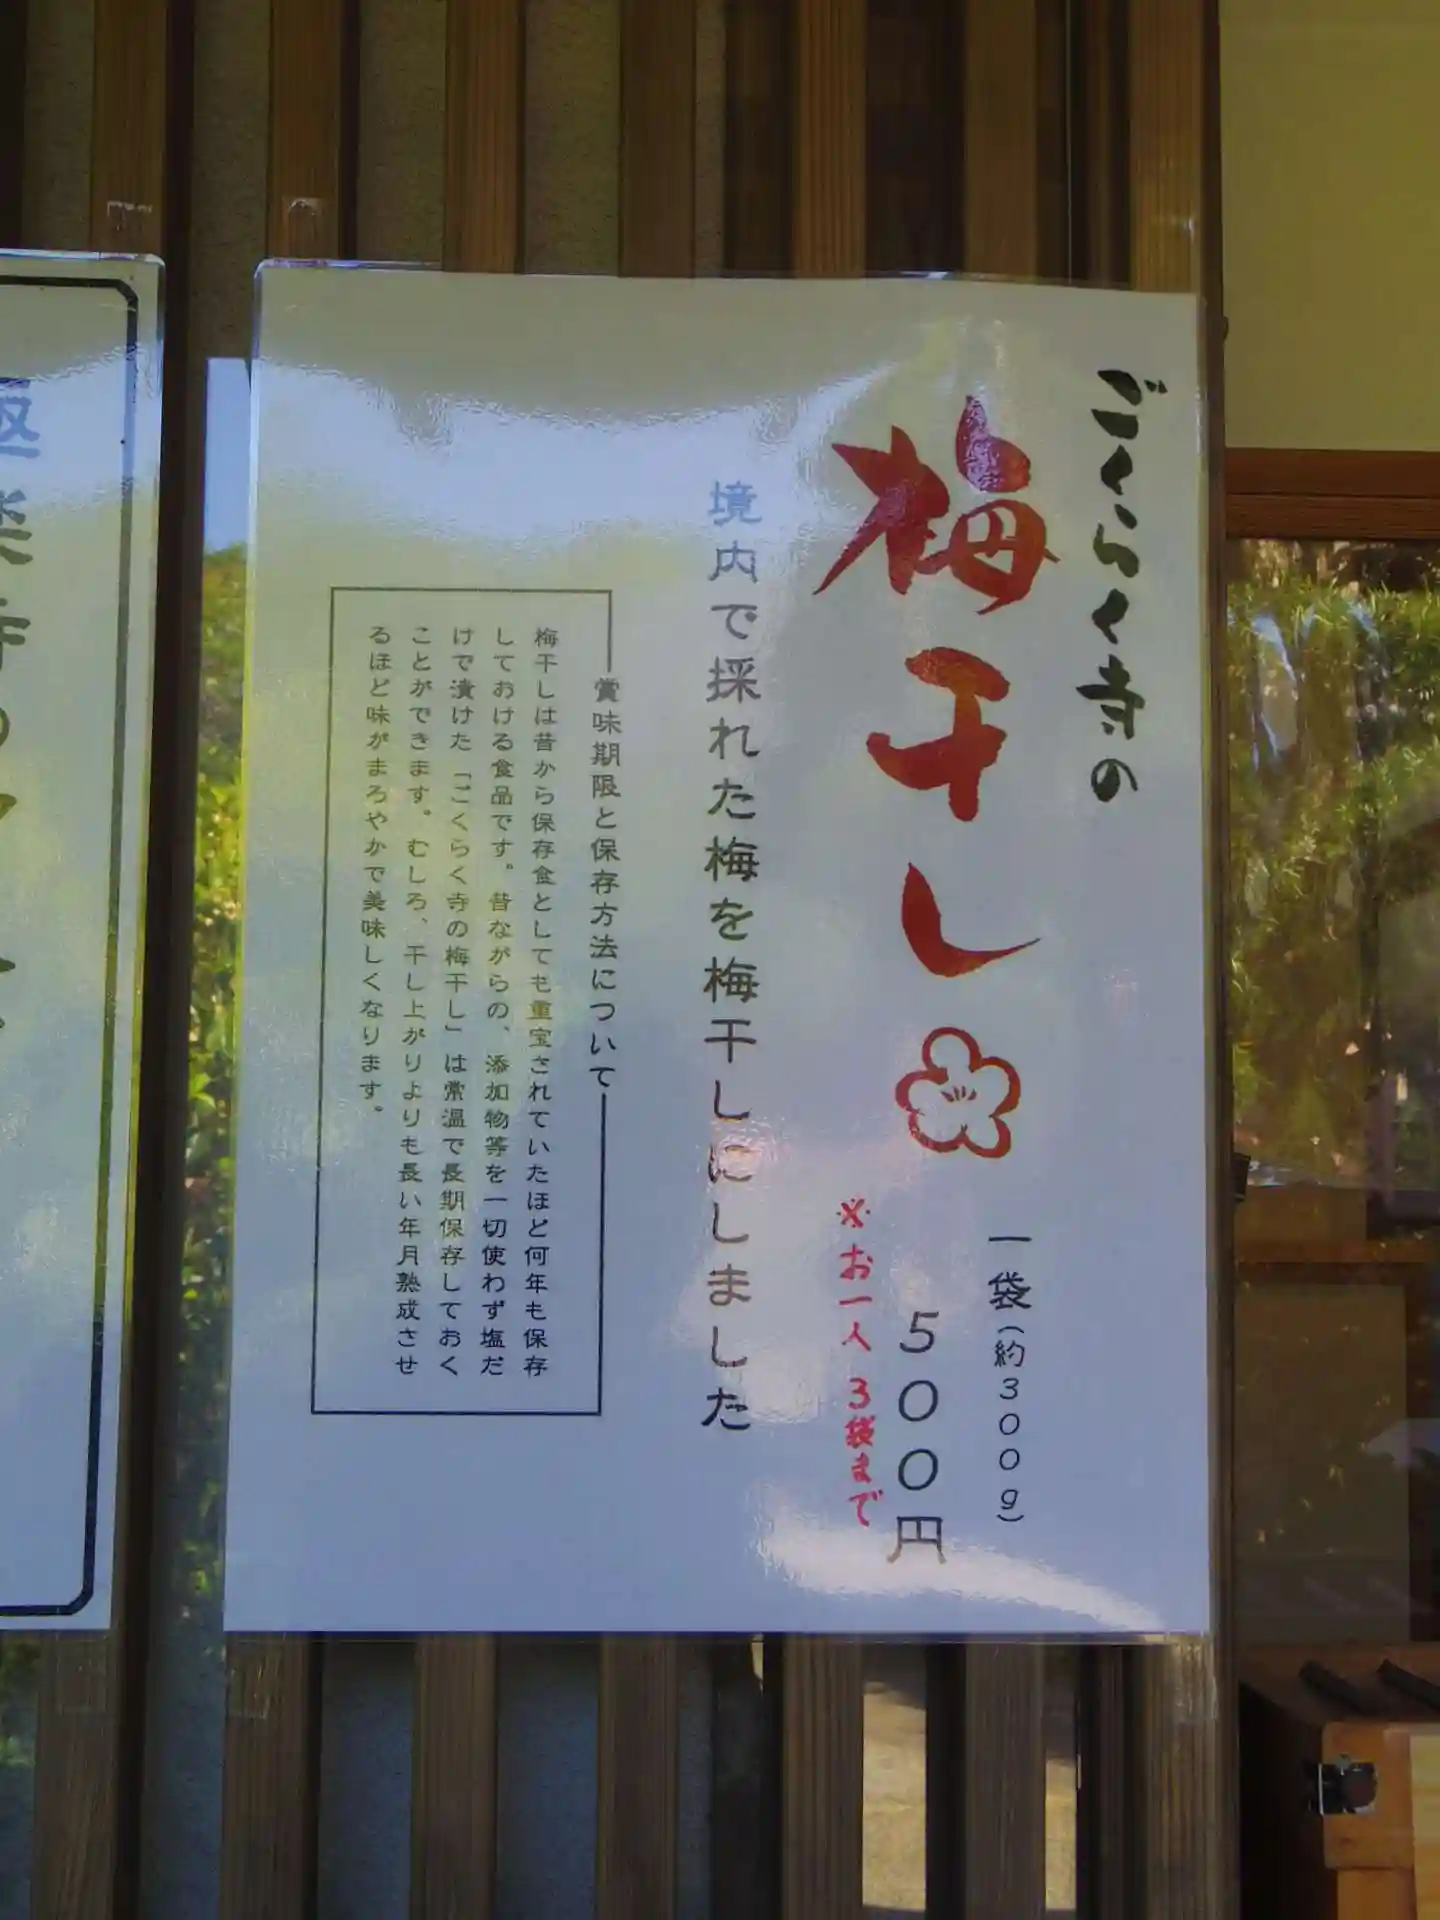 ごくらく寺の
梅干し
一袋（約300g）
500円
※お一人 3袋まで
境内で採れた梅を梅干しにしました
賞味期限と保存方法について
梅干しは昔から保存食としても重宝されていたほど何年も保存
しておける食品です。昔ながらの、添加物等を一切使わず塩だ
けで漬けた「ごくらく寺の梅干し」は常温で長期保存しておく
ことができます。むしろ、干し上がりよりも長い年月熟成させ
るほど味がまろやかで美味しくなります。